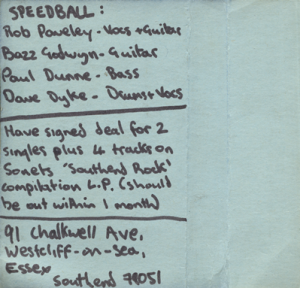 SPEEDBALL :
Rob Paveley - Vocs + Guitar
Bazz Godwyn - Guitar
Paul Dunne - Bass
Dave Dyke - Drums + Vocs
Have signed deal for 2
singles plus 4 tracks on
Sonets 'Southend Rock'
compilation L.P. (should
be out within 1 month)
91 Chalkwell Ave,
Westcliff-on-Sea,
Essex
Southend 79051